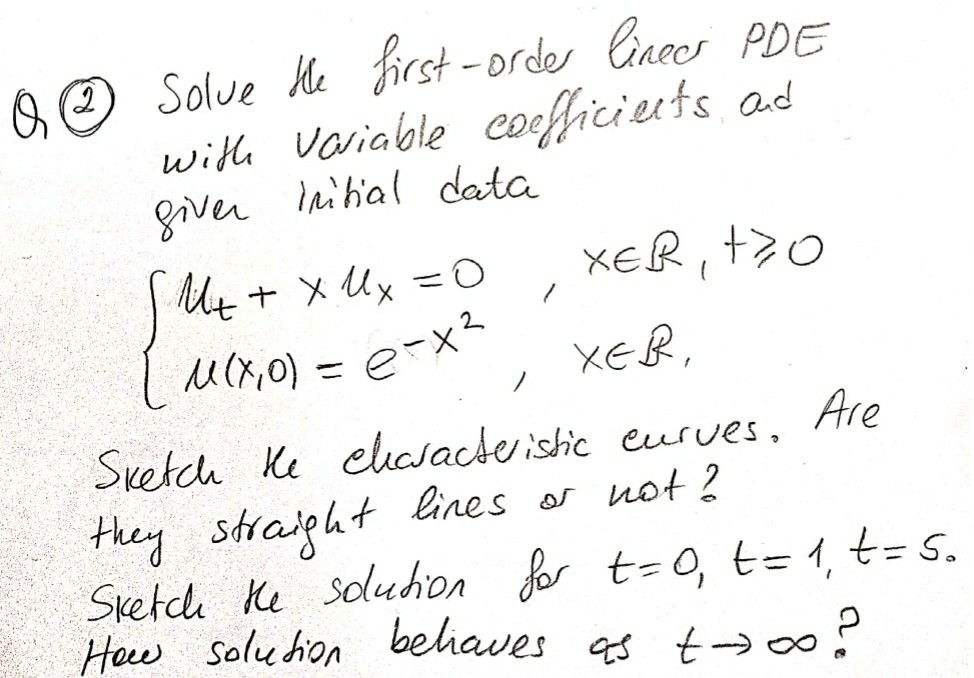 Q ② Solve the first-order linear PDE
with variable coefficients and
given initial data
{ u_t + x u_x = 0 , x∈ℝ, t⩾0
u(x,0) = e^{-x^2} , x∈ℝ,
Sketch the characteristic curves. Are
they straight lines or not?
Sketch the solution for t=0, t=1, t=5.
How solution behaves as t→∞?